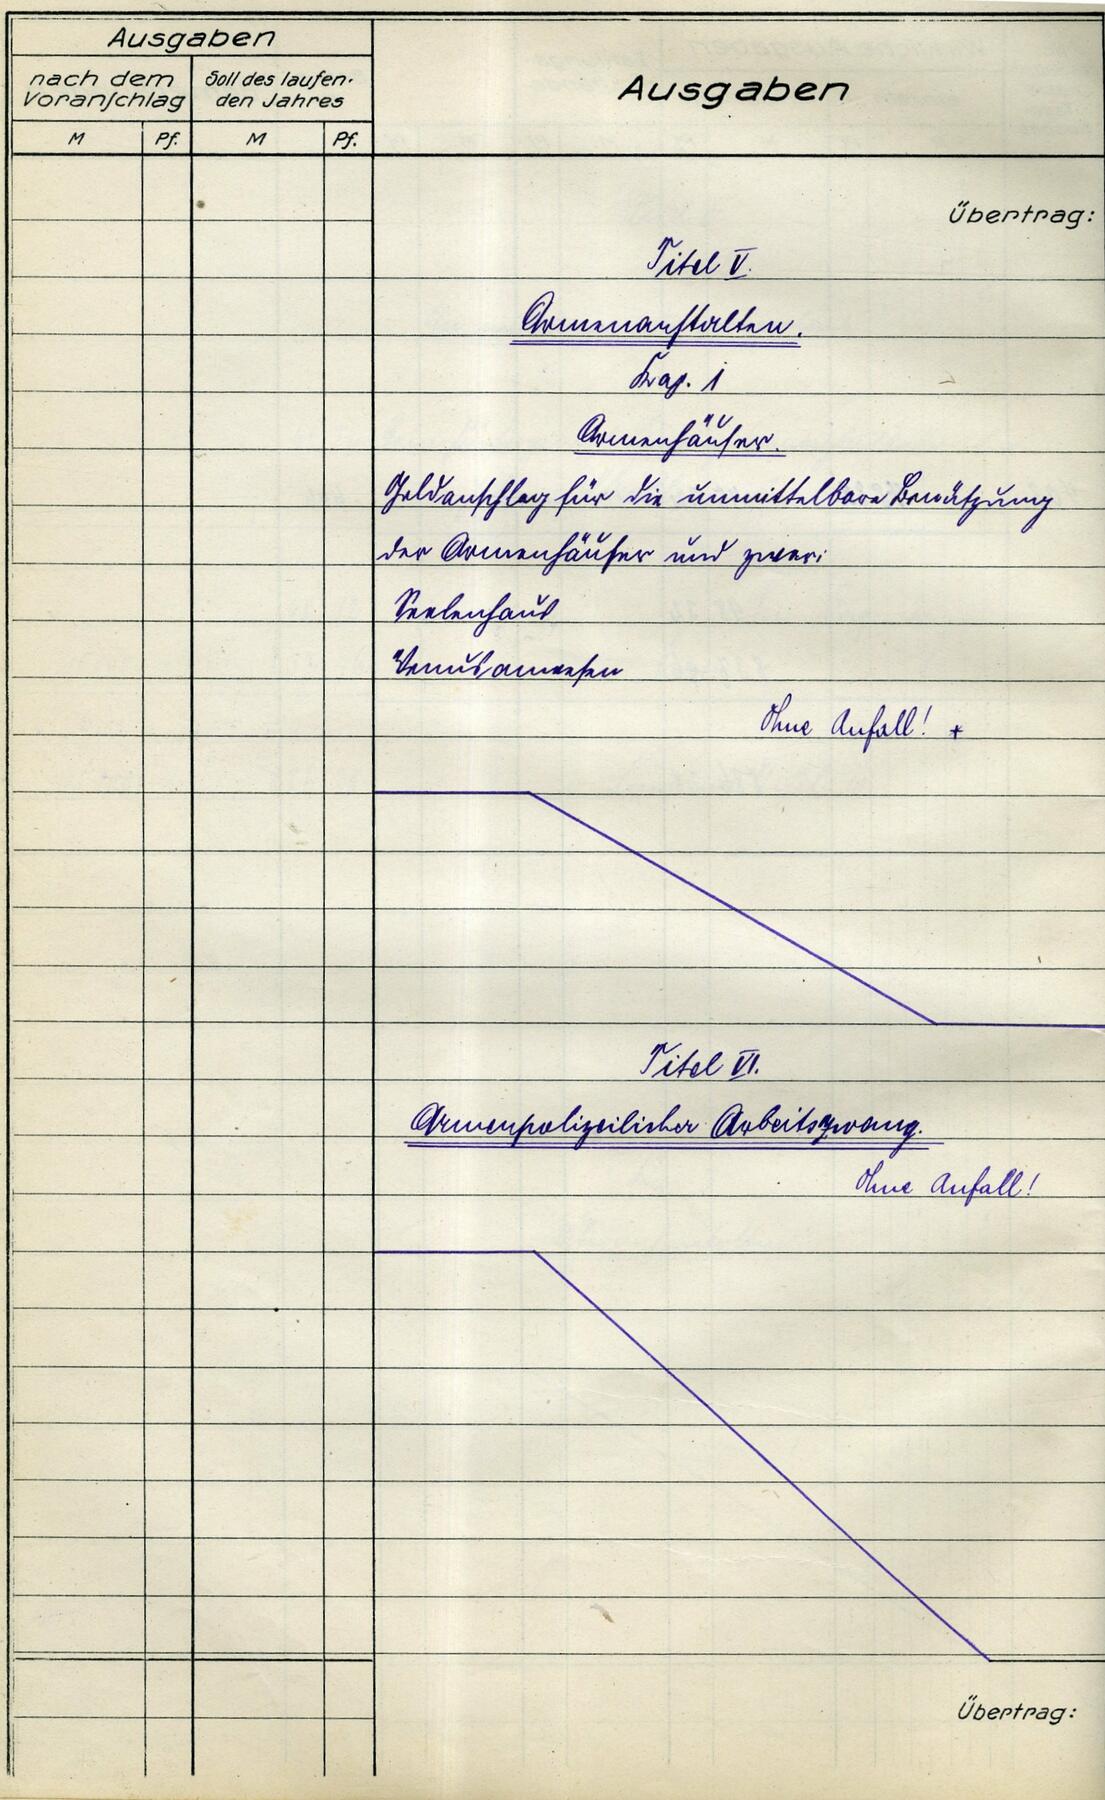 Ausgaben
nach dem Voranschlag
Soll des laufenden Jahres
M Pf. M Pf.
Ausgaben
Übertrag:
Titel V.
Armenanstalten.
Kap. 1
Armenhäuser.
Geldanschlag für die unmittelbare Benützung
der Armenhäuser und zwar:
Seelenhaus
Venusanwesen
Ohne Anfall! +
Titel VI.
Armenpolizeilicher Arbeitszwang.
Ohne Anfall!
Übertrag: